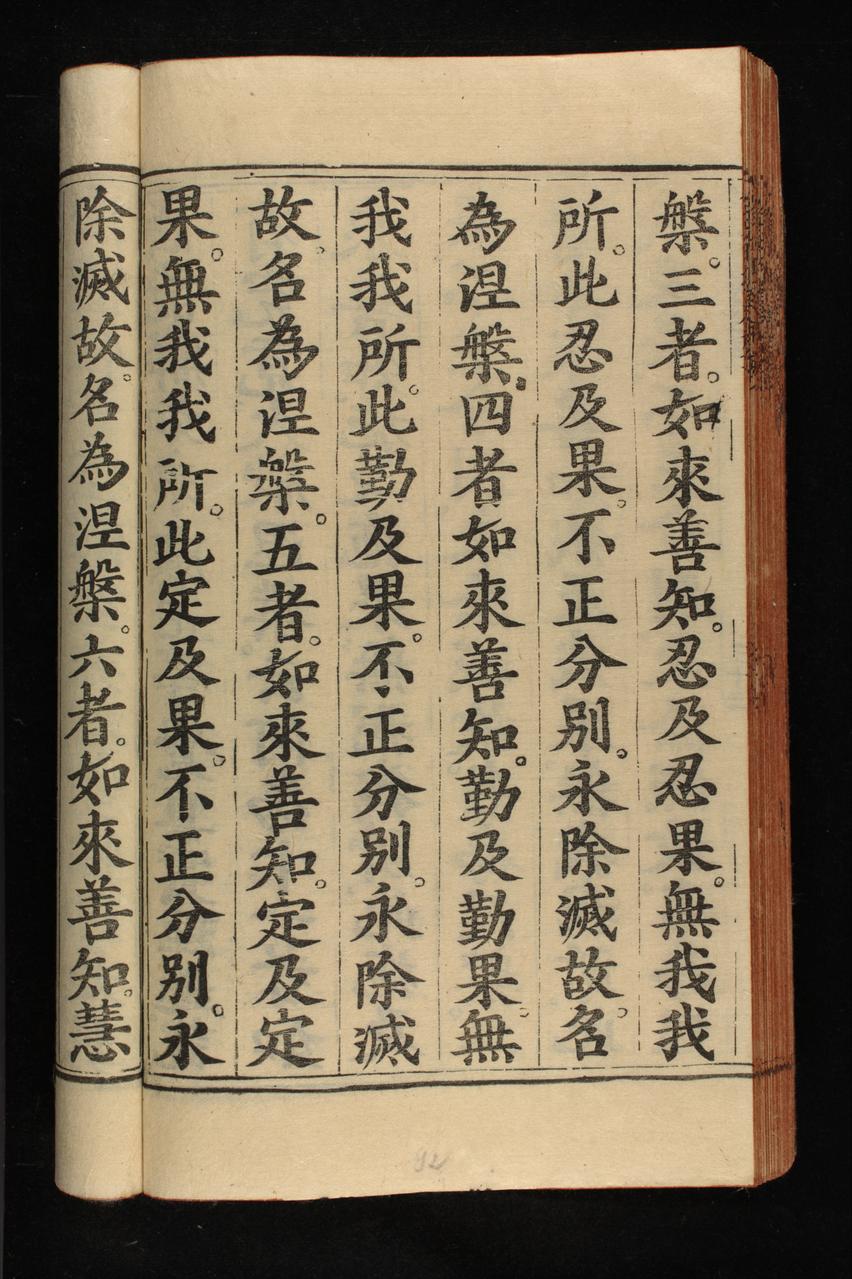 槃。三者。如來善知。忍及忍果。無我我
所。此忍及果。不正分別。永除滅故。名
為涅槃。四者如來善知。勤及勤果。無
我我所。此勤及果。不正分別。永除滅
故。名為涅槃。五者。如來善知。定及定
果。無我我所。此定及果。不正分別。永
除滅故。名為涅槃。六者。如來善知。慧
92